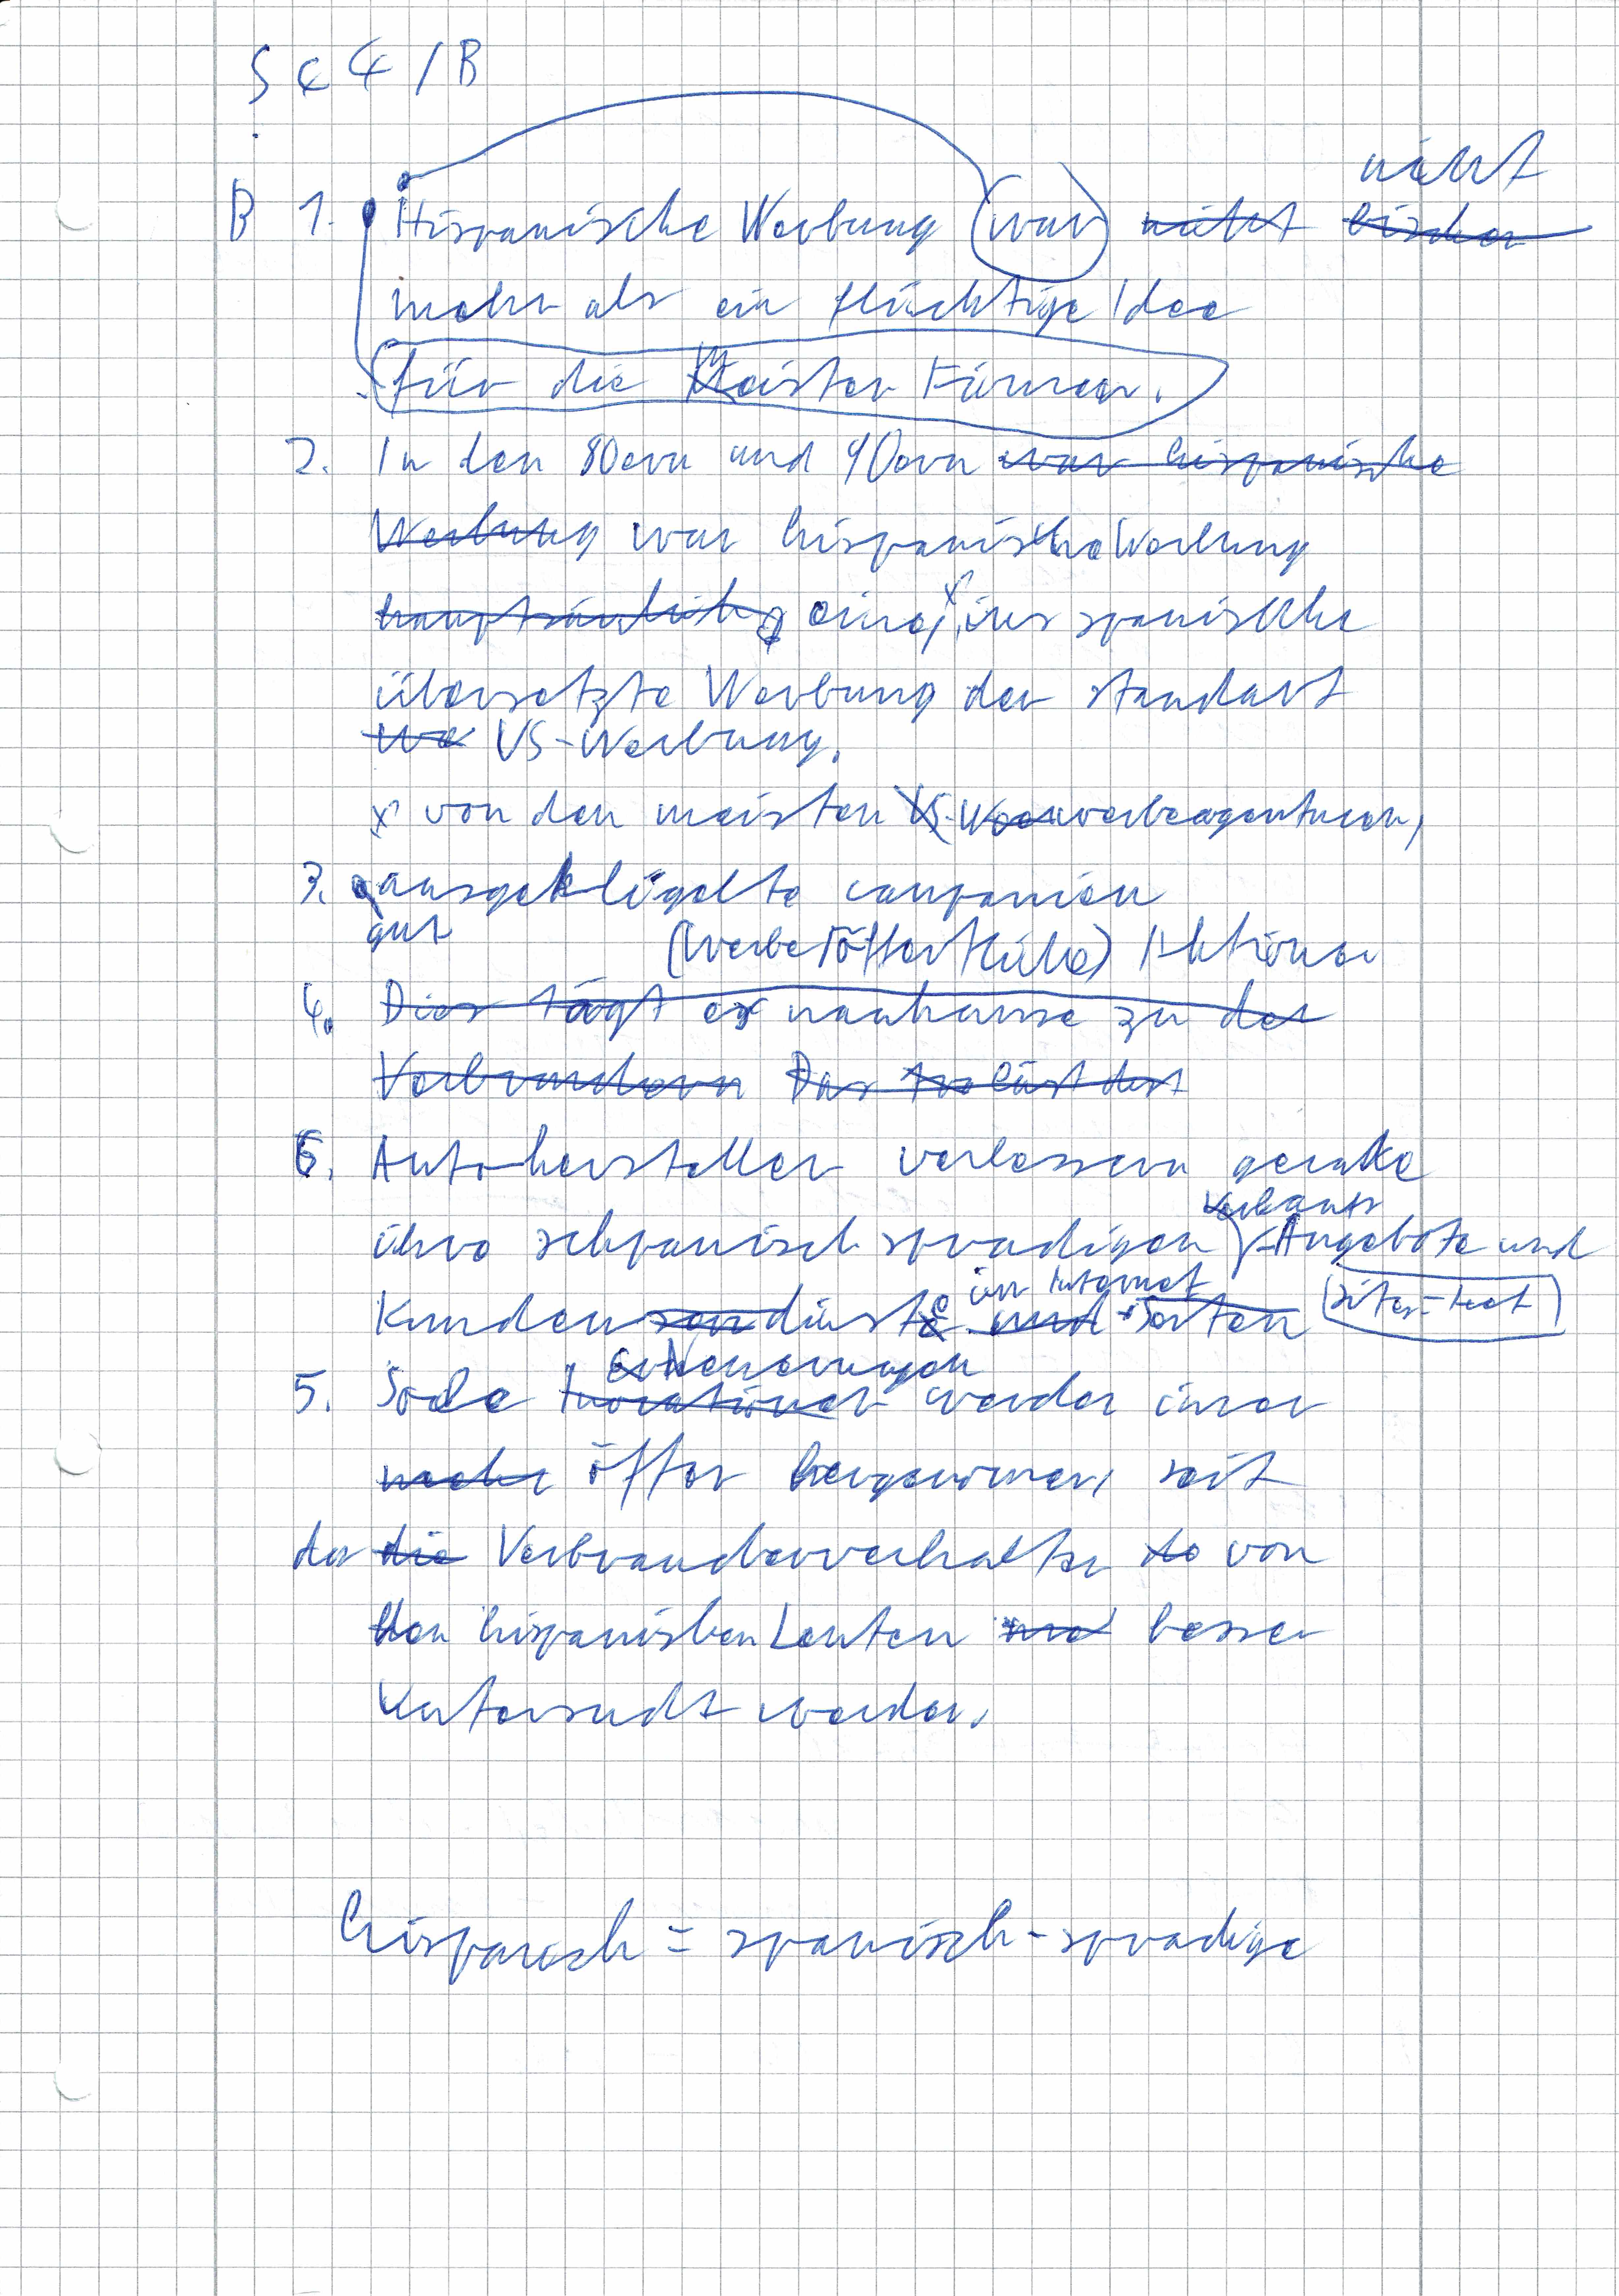 S 44 / B
nicht
B 1. Hispanische Werbung (war) nicht bisher
mehr als ein flüchtige Idee
für die Meisten Firmen.
2. In den 80ern und 90ern war hispanische
Werbung war hispanische Werbung
hauptsächlich eine x ins spanische
übersetzte Werbung der standart
US-Werbung.
x von den meisten US-Werbeagenturen,
3. ausgeklügelte campanien
gut (Werbe/öffentliche) Aktionen
4. Dies trägt er nachhause zu der
Verbrauchern Das
6. Autohersteller verbessern gerade
Verkaufs
ihre schpanisch sprachigen -Angebote und
im Internet
Kunden dienste und Seiten (sites-text)
Erneuerungen
5. Sole Inovationen werden immer
mehr öffter hergenommen, seit
das die Verbraucherverhalten von
den hispanishen Leuten besser
Untersucht werden.
hispanisch = spanisch-sprachige